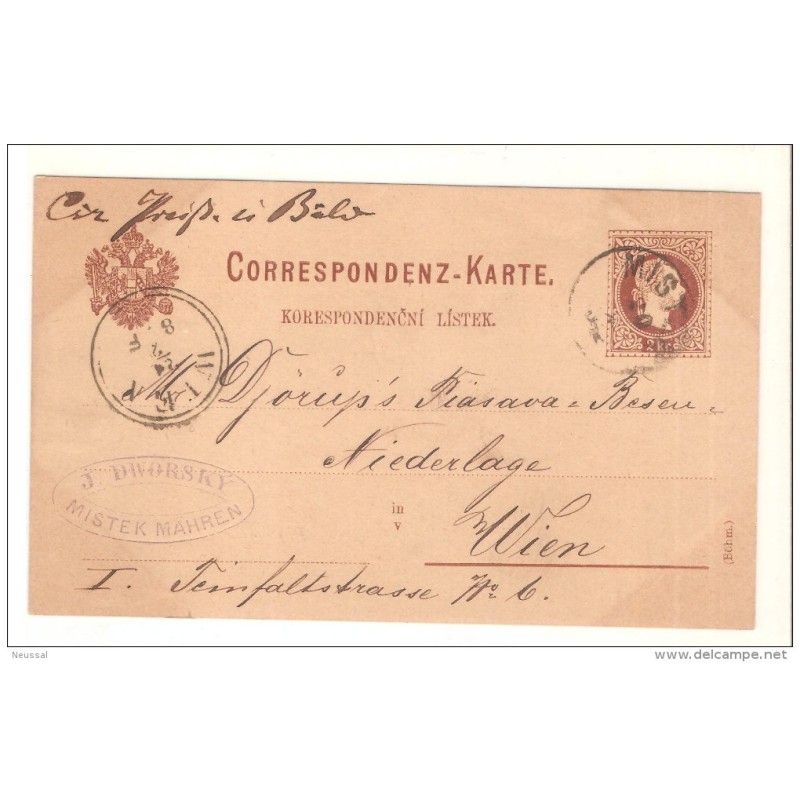 CORRESPONDENZ-KARTE.
KORESPONDENČNÍ LÍSTEK.
MIST
2 kr.
WIEN
Djörup's Piasava-Besen-
Niederlage
J. DWORSKY
MISTEK MÄHREN
in
v
Wien
I. Teinfaltstrasse No. 6.
(Böhm.)
Neussal
www.delcampe.net